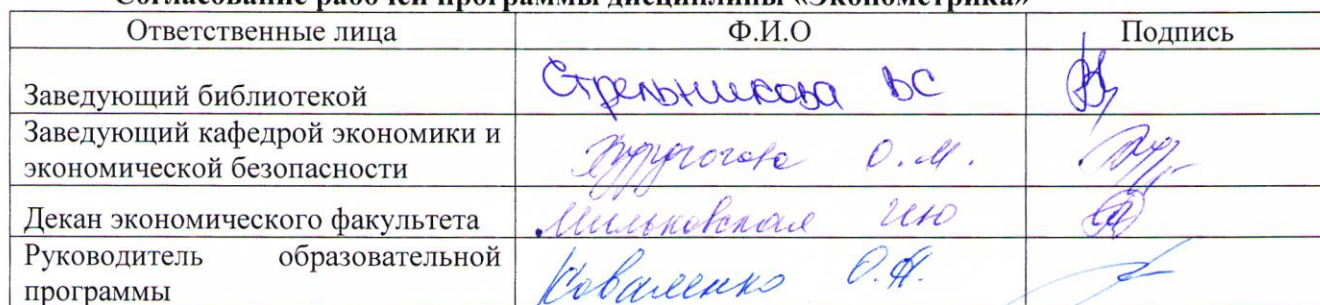 Согласование рабочей программы дисциплины «Эконометрика»
Ответственные лица Ф.И.О Подпись
Заведующий библиотекой Стрельникова ВС
Заведующий кафедрой экономики и
экономической безопасности О.М.
Декан экономического факультета Мильковская ИЮ
Руководитель образовательной
программы Коваленко О.А.